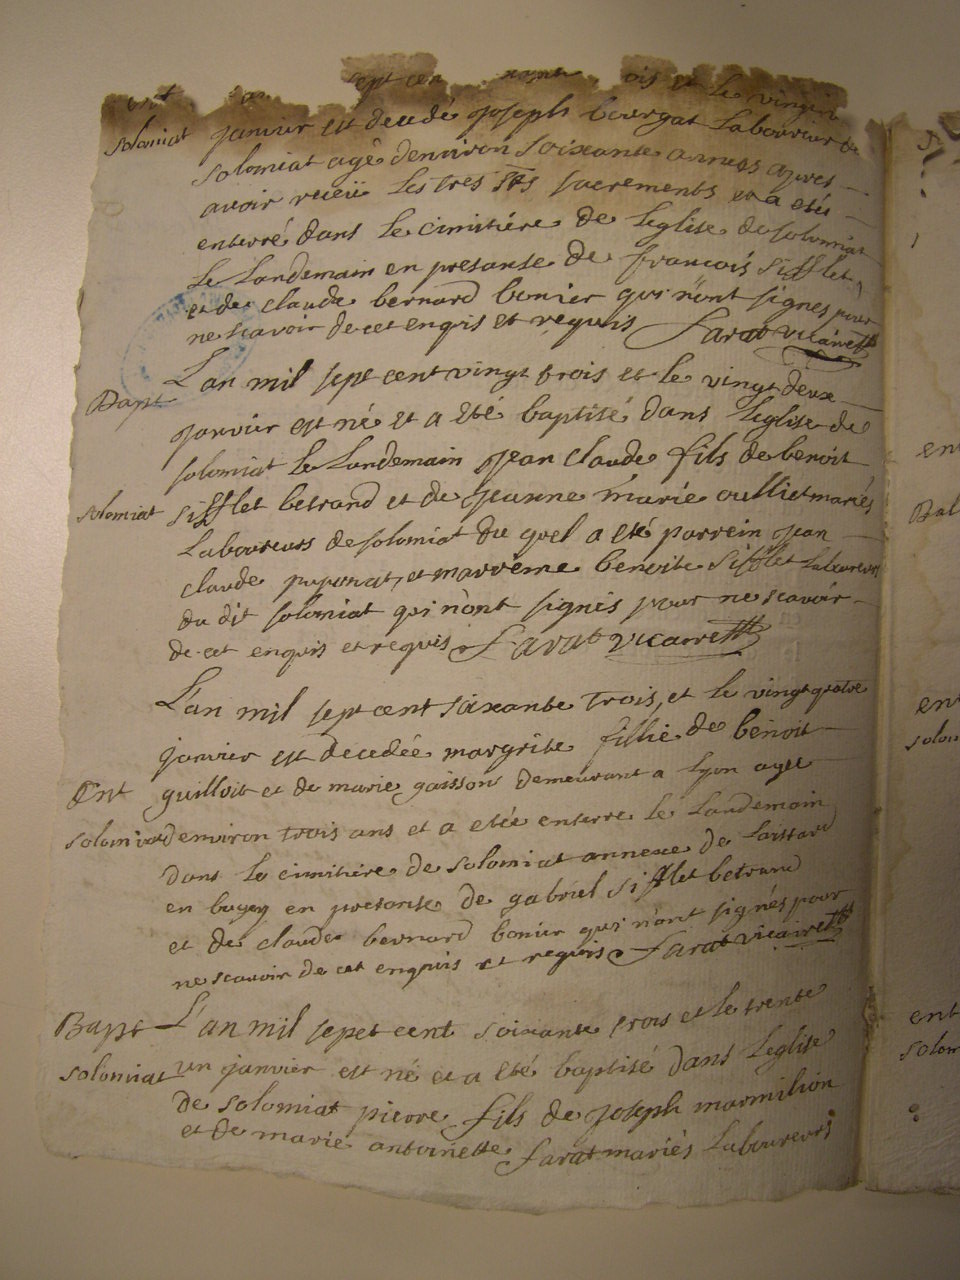 ent
sept cen
ois et le vingtie
solomiat
janvier est decedé joseph bourgat laboureur de
solomiat agé denviron soixante annees apres
avoir receü les tres sts sacrements et a etés
enterré dans le cimitiére de leglise de solomiat
le landemain en presanse de francois sifflet
et de claude bernard bonier qui n'ont signes pour
ne scavoir de cet enquis et requis farat vicaire
Bapt
L'an mil sept cent vingt trois et le vingt deux
janvier est né et a eté baptisé dans leglise de
solomiat le landemain jean claude fils de benoit
solomiat
sifflet betrand et de jeanne marie oulliet mariés
laboureurs de solomiat du quel a eté parrein jean
claude puponat, et marreine benoite sifflet laboureurs
du dit solomiat qui n'ont signés pour ne scavoir
de cet enquis et requis farat vicaire
L'an mil sept cent soixante trois, et le vingt quatre
janvier est decedée margrite fillie de benoit
Ent
guilloit et de marie gaisson demeurant a lyon agee
solomiat
denviron trois ans et a etée enterre le landemain
dans le cimitiére de solomiat annexe de laissard
en bugey en presanse de gabriel sifflet betrand
et de claude bernard bonier qui n'ont signés pour
ne scavoir de cet enquis et requis farat vicaire
Bapt
L'an mil sepet cent soixante trois et le trente
solomiat
un janvier est né et a eté baptisé dans leglise
de solomiat pierre fils de joseph marmilion
et de marie antoinette farat mariés laboureurs
ent
Bal
ent
solom
ent
solom